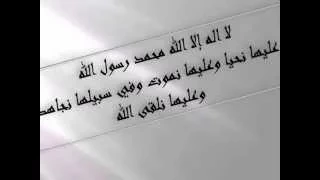 لا اله إلا الله محمد رسول الله
عليها نحيا وعليها نموت وفي سبيلها نجاهد
وعليها نلقى الله